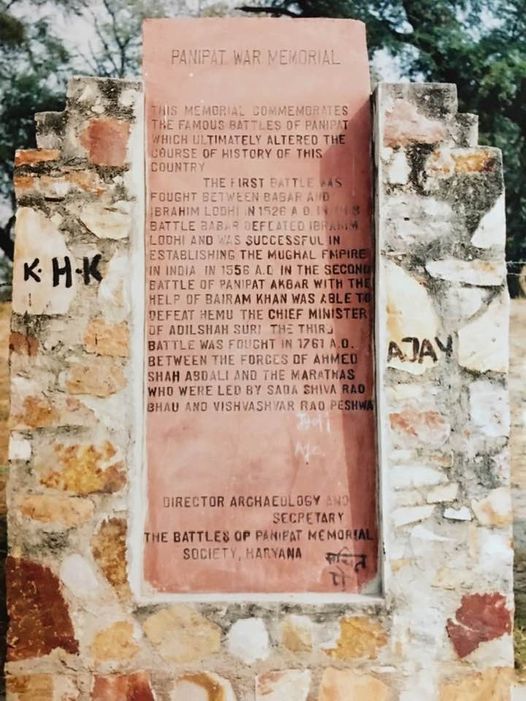 PANIPAT WAR MEMORIAL
THIS MEMORIAL COMMEMORATES
THE FAMOUS BATTLES OF PANIPAT
WHICH ULTIMATELY ALTERED THE
COURSE OF HISTORY OF THIS
COUNTRY
THE FIRST BATTLE WAS
FOUGHT BETWEEN BABAR AND
IBRAHIM LODHI IN 1526 A.D. IN THIS
BATTLE BABAR DEFEATED IBRAHIM
LODHI AND WAS SUCCESSFUL IN
ESTABLISHING THE MUGHAL EMPIRE
IN INDIA IN 1556 A.D. IN THE SECOND
BATTLE OF PANIPAT AKBAR WITH THE
HELP OF BAIRAM KHAN WAS ABLE TO
DEFEAT HEMU THE CHIEF MINISTER
OF ADILSHAH SURI THE THIRD
BATTLE WAS FOUGHT IN 1761 A.D.
BETWEEN THE FORCES OF AHMED
SHAH ABDALI AND THE MARATHAS
WHO WERE LED BY SADA SHIVA RAO
BHAU AND VISHVASHVAR RAO PESHWA
DIRECTOR ARCHAEOLOGY AND
SECRETARY
THE BATTLES OP PANIPAT MEMORIAL
SOCIETY, HARYANA
K.H.K
AJAY